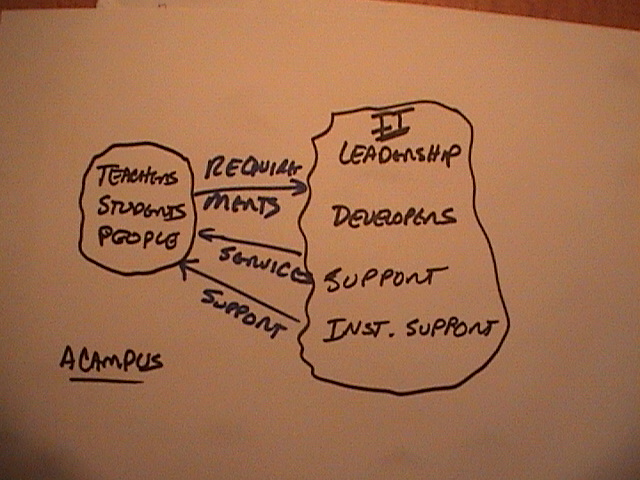 TEACHERS
STUDENTS
PEOPLE
REQUIRE
MENTS
SERVICES
SUPPORT
IT
LEADERSHIP
DEVELOPERS
SUPPORT
INST. SUPPORT
A CAMPUS